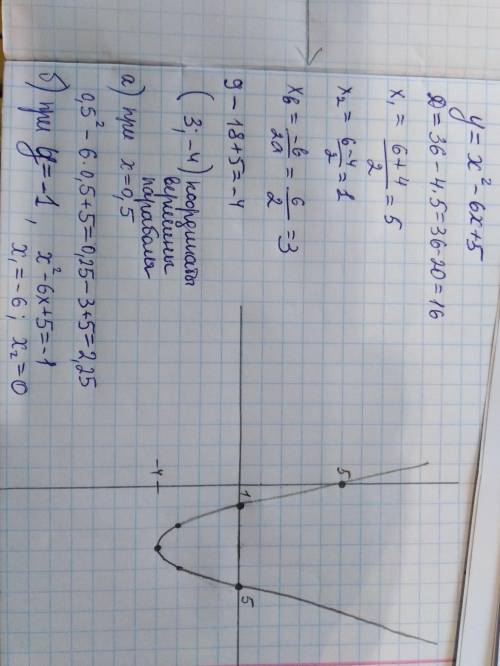 y = x² - 6x + 5
D = 36 - 4·5 = 36 - 20 = 16
x₁ = (6+4)/2 = 5
x₂ = (6-4)/2 = 1
xв = -b/2a = 6/2 = 3
9 - 18 + 5 = -4
(3; -4) координаты вершины параболы
а) при x = 0,5
0,5² - 6·0,5 + 5 = 0,25 - 3 + 5 = 2,25
б) при y = -1, x² - 6x + 5 = -1
x₁ = -6; x₂ = 0
5
1
5
-4